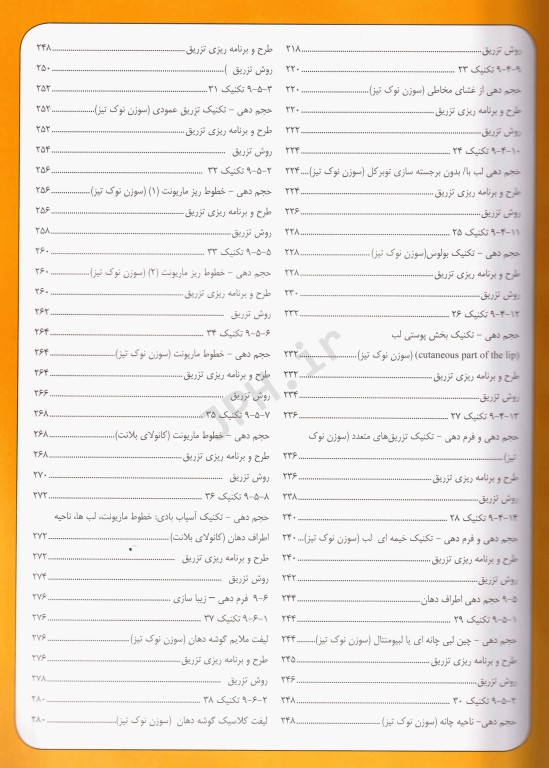 روش تزریق ............ ۲۱۸
۹-۴-۹ تکنیک ۲۳ ............ ۲۲۰
حجم دهی از غشای مخاطی (سوزن نوک تیز) ............ ۲۲۰
طرح و برنامه ریزی تزریق ............ ۲۲۰
روش تزریق ............ ۲۲۲
۹-۴-۱۰ تکنیک ۲۴ ............ ۲۲۴
حجم دهی لب با/ بدون برجسته سازی توبرکل (سوزن نوک تیز) .... ۲۲۴
طرح و برنامه ریزی تزریق ............ ۲۲۴
روش تزریق ............ ۲۲۶
۹-۴-۱۱ تکنیک ۲۵ ............ ۲۲۸
حجم دهی – تکنیک بولوس(سوزن نوک تیز) ............ ۲۲۸
طرح و برنامه ریزی تزریق ............ ۲۲۸
روش تزریق ............ ۲۳۰
۹-۴-۱۲ تکنیک ۲۶ ............ ۲۳۲
حجم دهی – تکنیک بخش پوستی لب
(cutaneous part of the lip) (سوزن نوک تیز) ............ ۲۳۲
طرح و برنامه ریزی تزریق ............ ۲۳۲
روش تزریق ............ ۲۳۴
۹-۴-۱۳ تکنیک ۲۷ ............ ۲۳۶
حجم دهی و فرم دهی – تکنیک تزریق‌های متعدد (سوزن نوک
تیز) ............ ۲۳۶
طرح و برنامه ریزی تزریق ............ ۲۳۶
روش تزریق ............ ۲۳۸
۹-۴-۱۴ تکنیک ۲۸ ............ ۲۴۰
حجم دهی و فرم دهی – تکنیک خیمه ای لب (سوزن نوک تیز) .... ۲۴۰
طرح و برنامه ریزی تزریق ............ ۲۴۰
روش تزریق ............ ۲۴۲
۹-۵ حجم دهی اطراف دهان ............ ۲۴۴
۹-۵-۱ تکنیک ۲۹ ............ ۲۴۴
حجم دهی – چین لبی چانه ای یا لبیومنتال (سوزن نوک تیز) ........ ۲۴۴
طرح و برنامه ریزی تزریق ............ ۲۴۵
روش تزریق ............ ۲۴۶
۹-۵-۲ تکنیک ۳۰ ............ ۲۴۸
حجم دهی- ناحیه چانه (سوزن نوک تیز) ............ ۲۴۸
طرح و برنامه ریزی تزریق ............ ۲۴۸
روش تزریق ) ............ ۲۵۰
۹-۵-۳ تکنیک ۳۱ ............ ۲۵۲
حجم دهی – تکنیک تزریق عمودی (سوزن نوک تیز) ............ ۲۵۲
طرح و برنامه ریزی تزریق ............ ۲۵۲
روش تزریق ............ ۲۵۴
۹-۵-۲ تکنیک ۳۲ ............ ۲۵۶
حجم دهی – خطوط ریز ماریونت (۱) (سوزن نوک تیز) ............ ۲۵۶
طرح و برنامه ریزی تزریق ............ ۲۵۶
روش تزریق ............ ۲۵۸
۹-۵-۵ تکنیک ۳۳ ............ ۲۶۰
حجم دهی – خطوط ریز ماریونت (۲) (سوزن نوک تیز) ............ ۲۶۰
طرح و برنامه ریزی تزریق ............ ۲۶۰
روش تزریق ............ ۲۶۲
۹-۵-۶ تکنیک ۳۴ ............ ۲۶۴
حجم دهی – خطوط ماریونت (سوزن نوک تیز) ............ ۲۶۴
طرح و برنامه ریزی تزریق ............ ۲۶۴
روش تزریق ............ ۲۶۶
۹-۵-۷ تکنیک ۳۵ ............ ۲۶۸
حجم دهی – خطوط ماریونت (کانولای بلانت) ............ ۲۶۸
طرح و برنامه ریزی تزریق ............ ۲۶۸
روش تزریق ............ ۲۷۰
۹-۵-۸ تکنیک ۳۶ ............ ۲۷۲
حجم دهی – تکنیک آسیاب بادی: خطوط ماریونت، لب ها، ناحیه
اطراف دهان (کانولای بلانت) ............ ۲۷۲
طرح و برنامه ریزی تزریق ............ ۲۷۲
روش تزریق ............ ۲۷۴
۹-۶ فرم دهی – زیبا سازی ............ ۲۷۶
۹-۶-۱ تکنیک ۳۷ ............ ۲۷۶
لیفت ملایم گوشه دهان (سوزن نوک تیز) ............ ۲۷۶
طرح و برنامه ریزی تزریق ............ ۲۷۶
روش تزریق ............ ۲۷۸
۹-۶-۲ تکنیک ۳۸ ............ ۲۸۰
لیفت کلاسیک گوشه دهان (سوزن نوک تیز) ............ ۲۸۰
JPH.ir